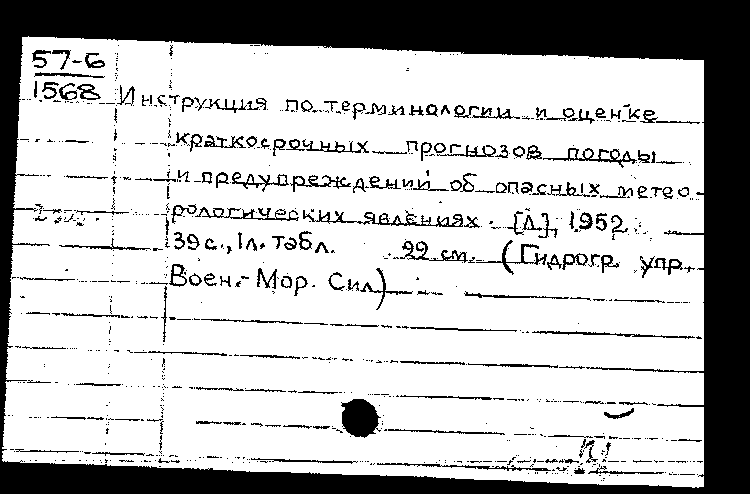 57-6
1568 Инструкция по терминологии и оценке
краткосрочных прогнозов погоды
и предупреждений об опасных метео-
рологических явлениях. [Л.], 1952.
39 с., 1 л. табл. 22 см. (Гидрогр. упр.
Воен.-Мор. Сил)